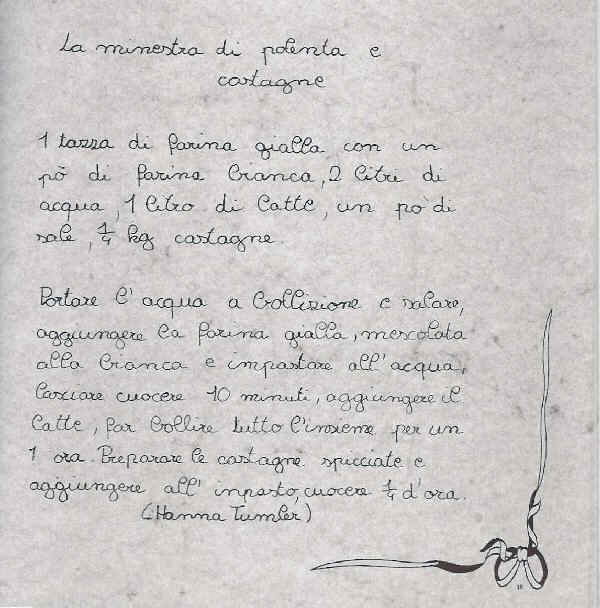 La minestra di polenta e
castagne
1 tazza di farina gialla con un
pò di farina bianca, 2 litri di
acqua, 1 litro di latte, un pò di
sale, 1/4 kg castagne.
Portare l'acqua a bollizione e salare,
aggiungere la farina gialla, mescolata
alla bianca e impastare all'acqua,
lasciare cuocere 10 minuti, aggiungere il
latte, far bollire tutto l'insieme per un
1 ora. Preparare le castagne spicciate e
aggiungere all' inpasto, cuocere 1/4 d'ora.
(Hanna Tumler)